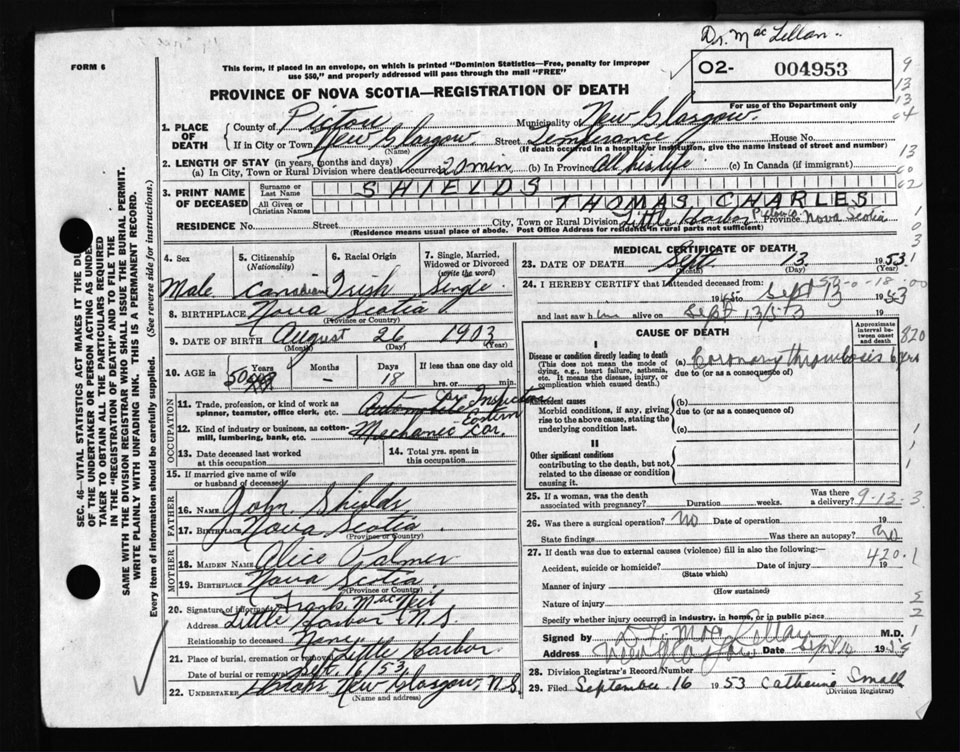 Dr. Mac Lellan
FORM 6
This form, if placed in an envelope, on which is printed "Dominion Statistics—Free, penalty for improper
use $50," and properly addressed will pass through the mail "FREE"
02- 004953
For use of the Department only
PROVINCE OF NOVA SCOTIA—REGISTRATION OF DEATH
1. PLACE OF DEATH
County of Pictou Municipality of New Glasgow
If in City or Town New Glasgow Street Temperance House No.
(Name) (If death occurred in a hospital or institution, give the name instead of street and number)
2. LENGTH OF STAY (in years, months and days)
(a) In City, Town or Rural Division where death occurred 20 min (b) in Province All his life (c) In Canada (if immigrant)
3. PRINT NAME OF DECEASED
Surname or Last Name SHIELDS
All Given or Christian Names THOMAS CHARLES
RESIDENCE No. Street City, Town or Rural Division Little Harbor Pictou Co. Province Nova Scotia
(Residence means usual place of abode. Post Office Address for residents in rural parts not sufficient)
SEC. 46—VITAL STATISTICS ACT MAKES IT THE DU
OF THE UNDERTAKER OR PERSON ACTING AS UNDER
TAKER TO OBTAIN ALL THE PARTICULARS REQUIRED
IN THE "REGISTRATION OF DEATH" AND TO FILE THE
SAME WITH THE DIVISION REGISTRAR WHO SHALL ISSUE THE BURIAL PERMIT.
WRITE PLAINLY WITH UNFADING INK. THIS IS A PERMANENT RECORD.
Every item of information should be carefully supplied. (See reverse side for instructions.)
4. Sex
Male
5. Citizenship
(Nationality)
Canadian
6. Racial Origin
Irish
7. Single, Married,
Widowed or Divorced
(write the word)
Single
8. BIRTHPLACE Nova Scotia
(Province or Country)
9. DATE OF BIRTH August 26 1903
(Month) (Day) (Year)
10. AGE in
Years Months Days If less than one day old
50 - 18 hrs. or min.
OCCUPATION
11. Trade, profession, or kind of work as
spinner, teamster, office clerk, etc. Automobile Inspector
12. Kind of industry or business, as cotton-
mill, lumbering, bank, etc. Mechanic Eastern Car.
13. Date deceased last worked
at this occupation
14. Total yrs. spent in
this occupation
15. If married give name of wife
or husband of deceased
FATHER
16. NAME John Shields
17. BIRTHPLACE Nova Scotia
(Province or Country)
MOTHER
18. MAIDEN NAME Alice Palmer
19. BIRTHPLACE Nova Scotia
(Province or Country)
20. Signature of informant Frank MacNeil
Address Little Harbor N.S.
Relationship to deceased None
21. Place of burial, cremation or removal Little Harbor
Date of burial or removal Sept. 16/53
22. UNDERTAKER New Glasgow, N.S.
(Name and address)
MEDICAL CERTIFICATE OF DEATH
23. DATE OF DEATH Sept 13 1953
(Month) (Day) (Year)
24. I HEREBY CERTIFY that I attended deceased from:
to Sept 1953
and last saw him alive on Sept 13/53
CAUSE OF DEATH
Approximate
interval be-
tween onset
and death
I
Disease or condition directly leading to death
(This does not mean the mode of
dying, e.g., heart failure, asthenia,
etc. It means the disease, injury, or
complication which caused death.)
(a) Coronary thrombosis 6 yrs
due to (or as a consequence of)
Antecedent causes
Morbid conditions, if any, giving
rise to the above cause, stating the
underlying condition last.
(b)
due to (or as a consequence of)
(c)
II
Other significant conditions
contributing to the death, but not
related to the disease or condition
causing it.
25. If a woman, was the death
associated with pregnancy? Duration weeks. Was there
a delivery? 9-13-3
26. Was there a surgical operation? No Date of operation 19
State findings Was there an autopsy? No
27. If death was due to external causes (violence) fill in also the following:—
420.1
Accident, suicide or homicide? Date of injury 19
(State which)
Manner of injury
(How sustained)
Nature of injury
Specify whether injury occurred in industry, in home, or in public place
Signed by M.D.
Address New Glasgow Date Sept 16 1953
28. Division Registrar's Record Number
29. Filed September 16 1953 Catherine Small
(Division Registrar)